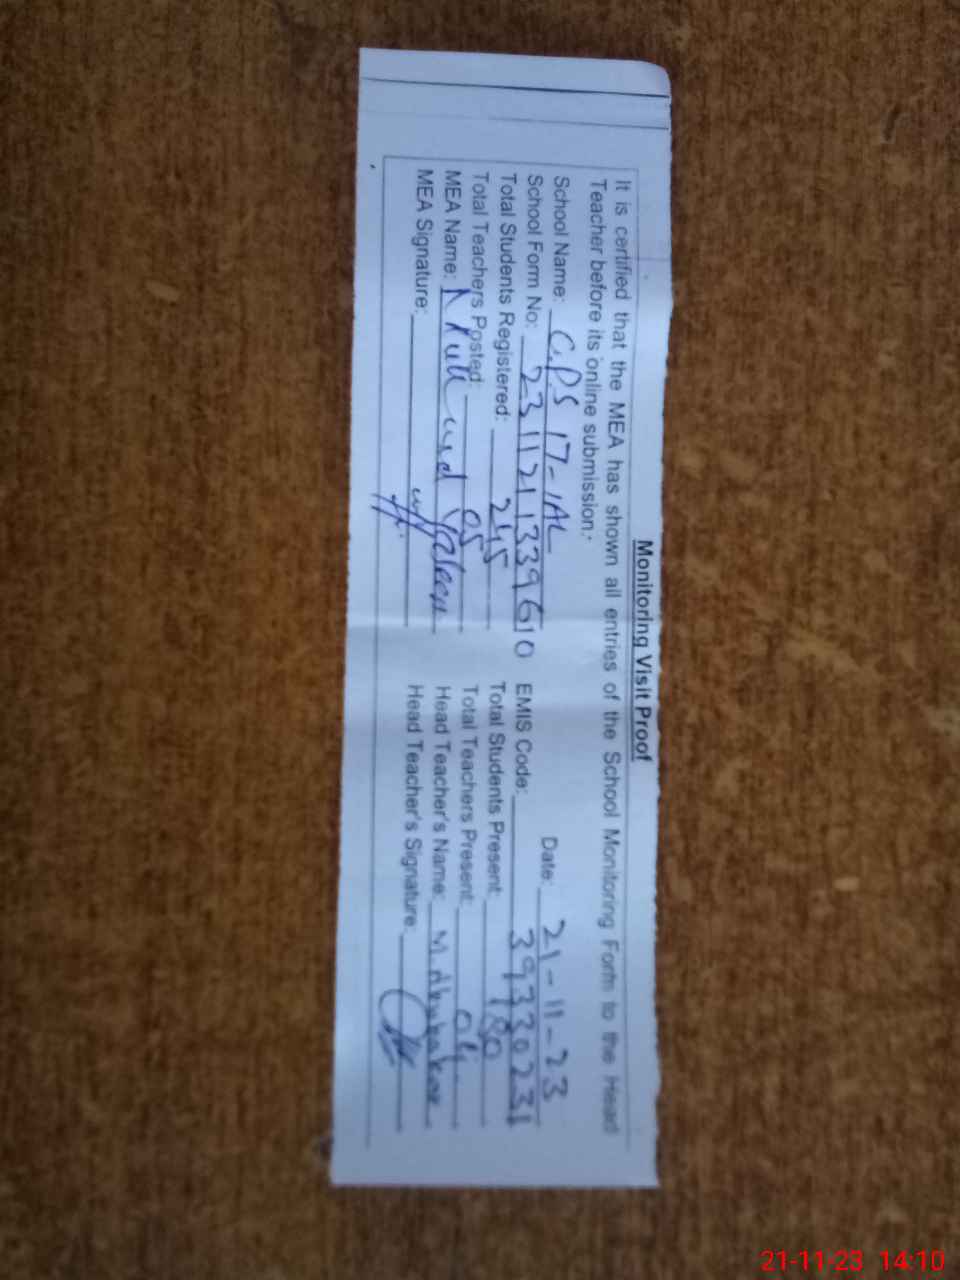 Monitoring Visit Proof
It is certified that the MEA has shown all entries of the School Monitoring Form to the Head
Teacher before its online submission.
School Name: G.P.S 17-1AL Date: 21-11-23
School Form No: 2311211339610 EMIS Code: 39330231
Total Students Registered: 245 Total Students Present: 180
Total Teachers Posted: 05 Total Teachers Present: 04
MEA Name: Head Teacher's Name: M. Abubakar
MEA Signature: Head Teacher's Signature:
21-11-23 14:10